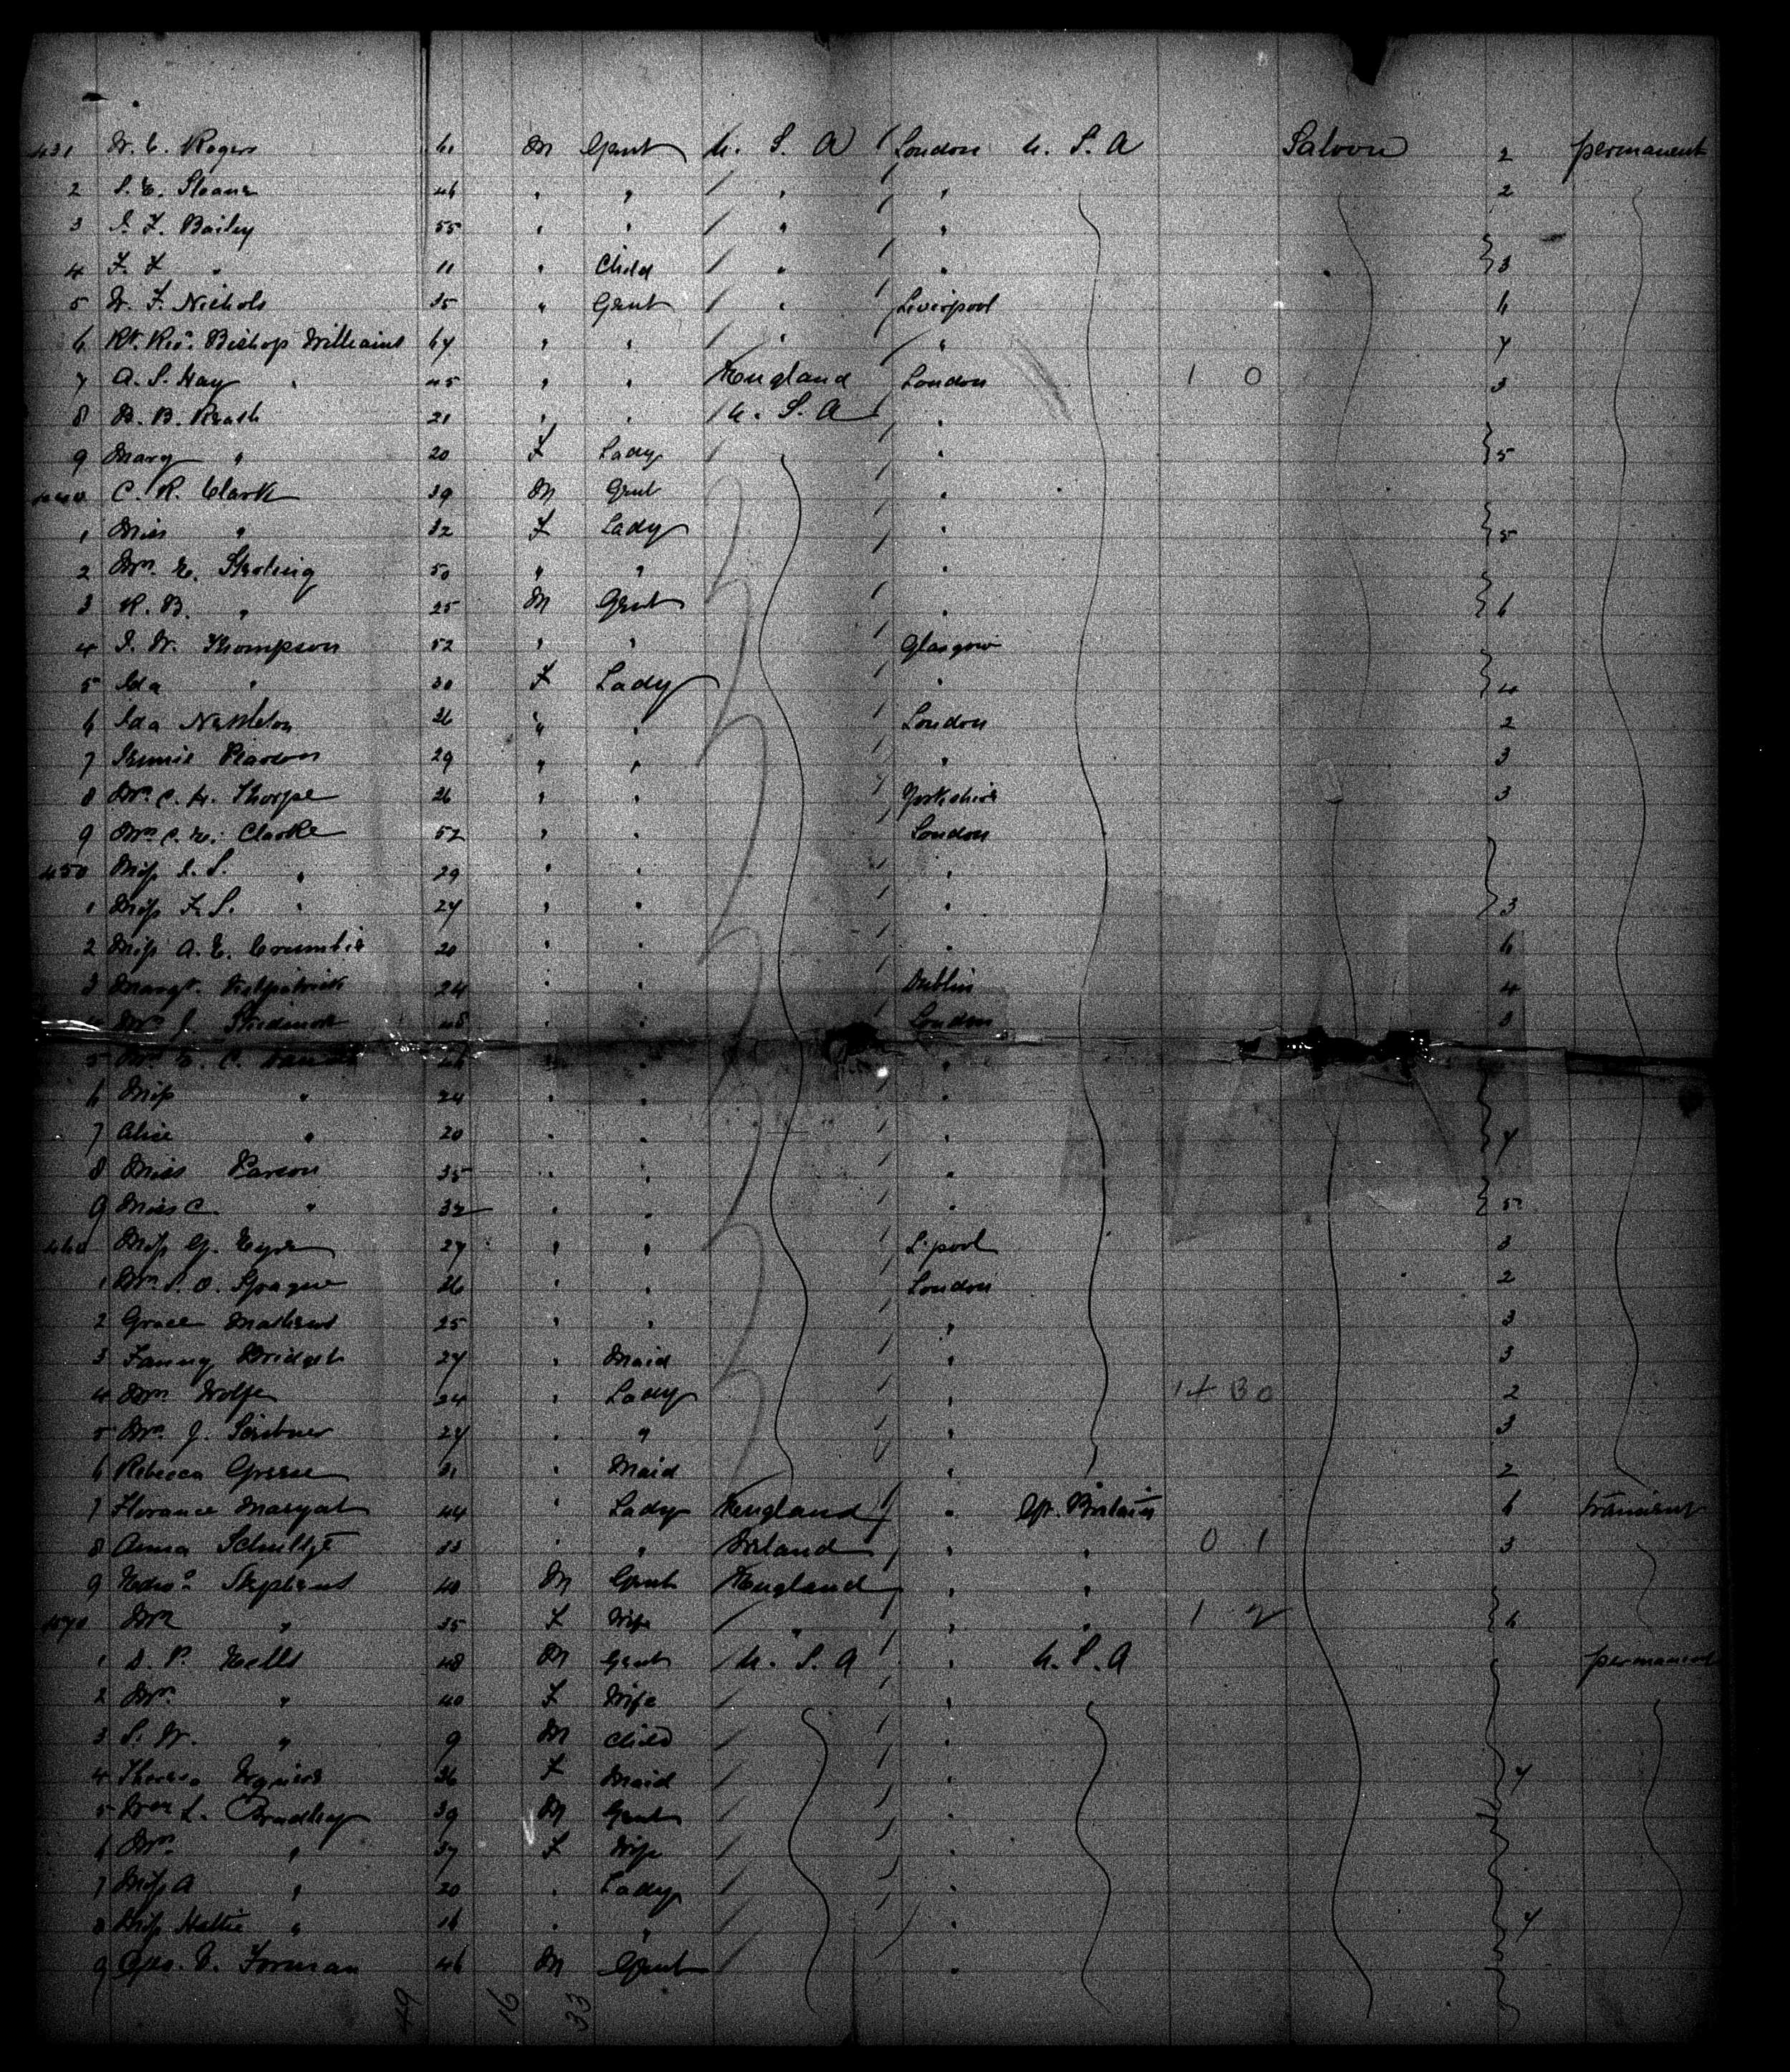 431 W. C. Rogers 61 M Gent U. S. A London U. S. A Saloon 2 permanent
2 S. E. Sloane 46 " " " " 2
3 J. F. Bailey 55 " " " "
4 F. F. " 11 " Child " " 3
5 W. F. Nichols 35 " Gent " Liverpool 6
6 Rt. Revd. Bishop Williams 67 " " " " 7
7 A. S. Hay 45 " " England London 1 0 3
8 B. B. 21 " " U. S. A "
9 Mary " 20 F Lady " 5
440 C. R. Clark 39 M Gent "
1 Miss " 32 F Lady " 5
2 Mrs. E. 50 " " "
3 R. B. " 25 M Gent " 6
4 J. W. Thompson 52 " " Glasgow
5 Ida " 30 F Lady " 4
6 Ida Nettleton 26 " " London 2
7 29 " " " 3
8 Mrs. C. H. Thorpe 26 " " Yorkshire 3
9 Mrs. C. E. Clarke 52 " " London
450 Miss J. S. " 29 " " "
1 Miss F. S. " 27 " " " 3
2 Miss A. E. 20 " " " 6
3 Margt. Kilpatrick 24 " " Dublin 4
4 Mrs. J. 48 " " London 3
5 Mrs. E. C. " " "
6 Miss " 24 " " "
7 Alice " 20 " " " 7
8 Miss Parson 35 " " "
9 Miss C. " 32 " " " 5
460 Miss G. Eyre 27 " " L.pool 3
1 Mrs. S. O. Sprague 26 " " London 2
2 Grace Mathews 25 " " " 3
3 Fanny Bridget 27 " Maid " 3
4 Mrs. Wolfe 24 " Lady " 14 30 2
5 Mrs. J. Scribner 27 " " " 3
6 Rebecca Greene 31 " Maid " 2
7 Florance Maryat 44 " Lady England " Gt. Britain 6 transient
8 Anna Schultze 33 " " Irland " " 0 1 3
9 Edwd. Stephens 40 M Gent England " "
470 Mrs " 35 F Wife " " " 1 2 6
1 D. P. Kells 48 M Gent U. S. A " U. S. A permanent
2 Mrs. " 40 F Wife "
3 S. W. " 9 M Child "
4 36 F Maid " 7
5 Wm L. Bradley 39 M Gent "
6 Mrs. " 37 F Wife "
7 Miss A " 20 " Lady "
8 Miss Hattie " 16 " " " 7
9 Geo. V. Forman 46 M Gent "
49 16 33